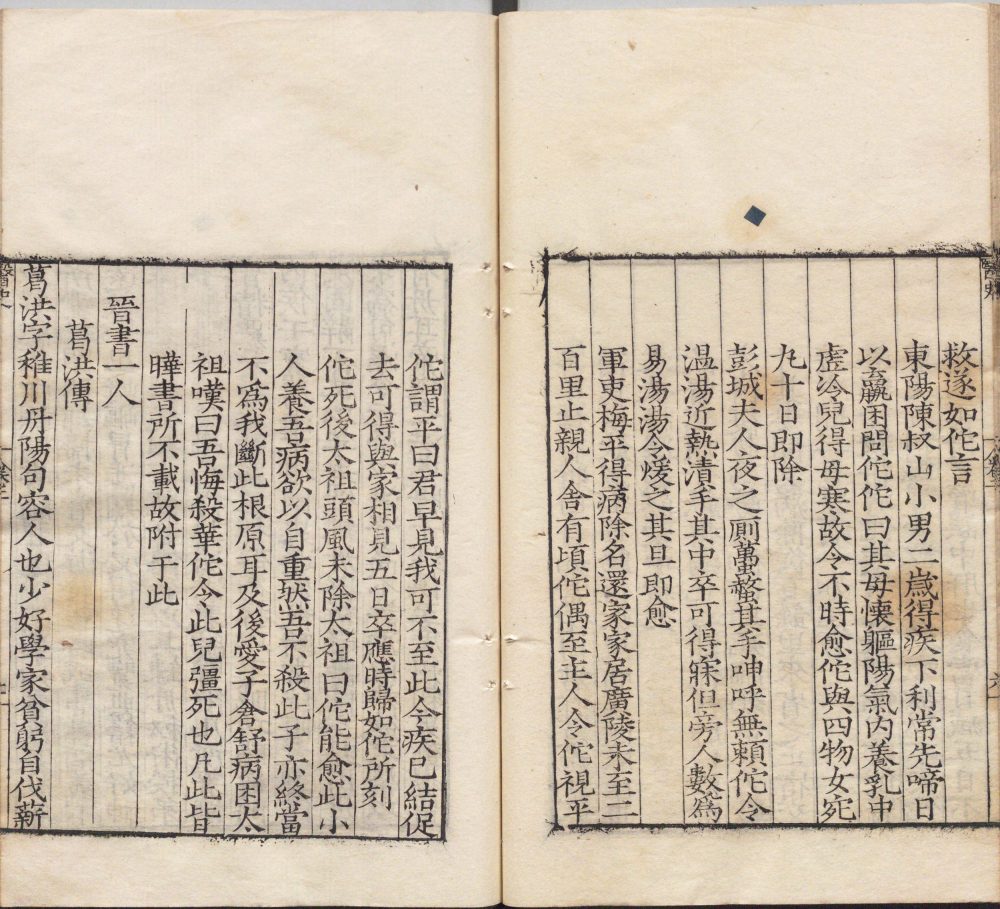 救遂如佗言
東陽陳叔山小男二歲得疾下利常先啼日
以羸困問佗佗曰其母懷軀陽氣內養乳中
虛冷兒得母寒故令不時愈佗與四物女宛
九十日即除
彭城夫人夜之厠蠆螫其手呻呼無賴佗令
温湯近熱漬手其中卒可得寐但旁人數爲
易湯湯令煖之其旦即愈
軍吏梅平得病除名還家家居廣陵未至二
百里止親人舍有頃佗偶至主人令佗視平
佗謂平曰君早見我可不至此今疾已結促
去可得與家相見五日卒應時歸如佗所刻
佗死後太祖頭風未除太祖曰佗能愈此小
人養吾病欲以自重然吾不殺此子亦終當
不爲我斷此根原耳及後愛子倉舒病困太
祖嘆曰吾悔殺華佗令此兒彊死也凡此皆
曄書所不載故附于此
晉書一人
葛洪傳
葛洪字稚川丹陽句容人也少好學家貧躬自伐薪